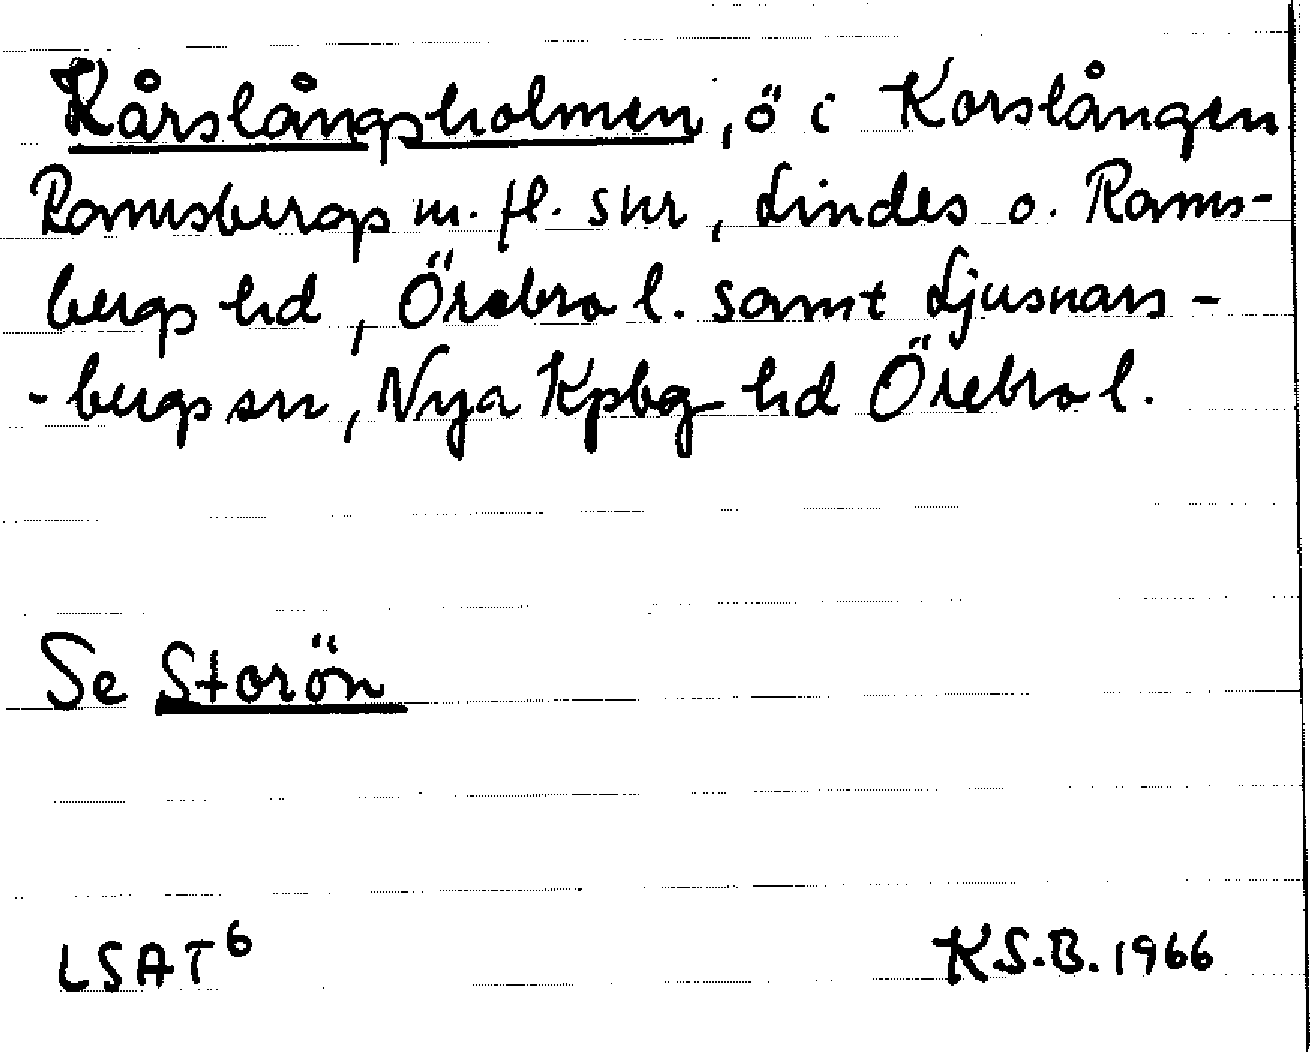 Kårslångsholmen, ö i Korslången
Ramsbergs m. fl. snr, Lindes o. Rams-
bergs hd, Örebro l. samt Ljusnars-
-bergs sn, Nya Kpbg hd Örebro l.
Se Storön
LSAT6 K.S.B. 1966